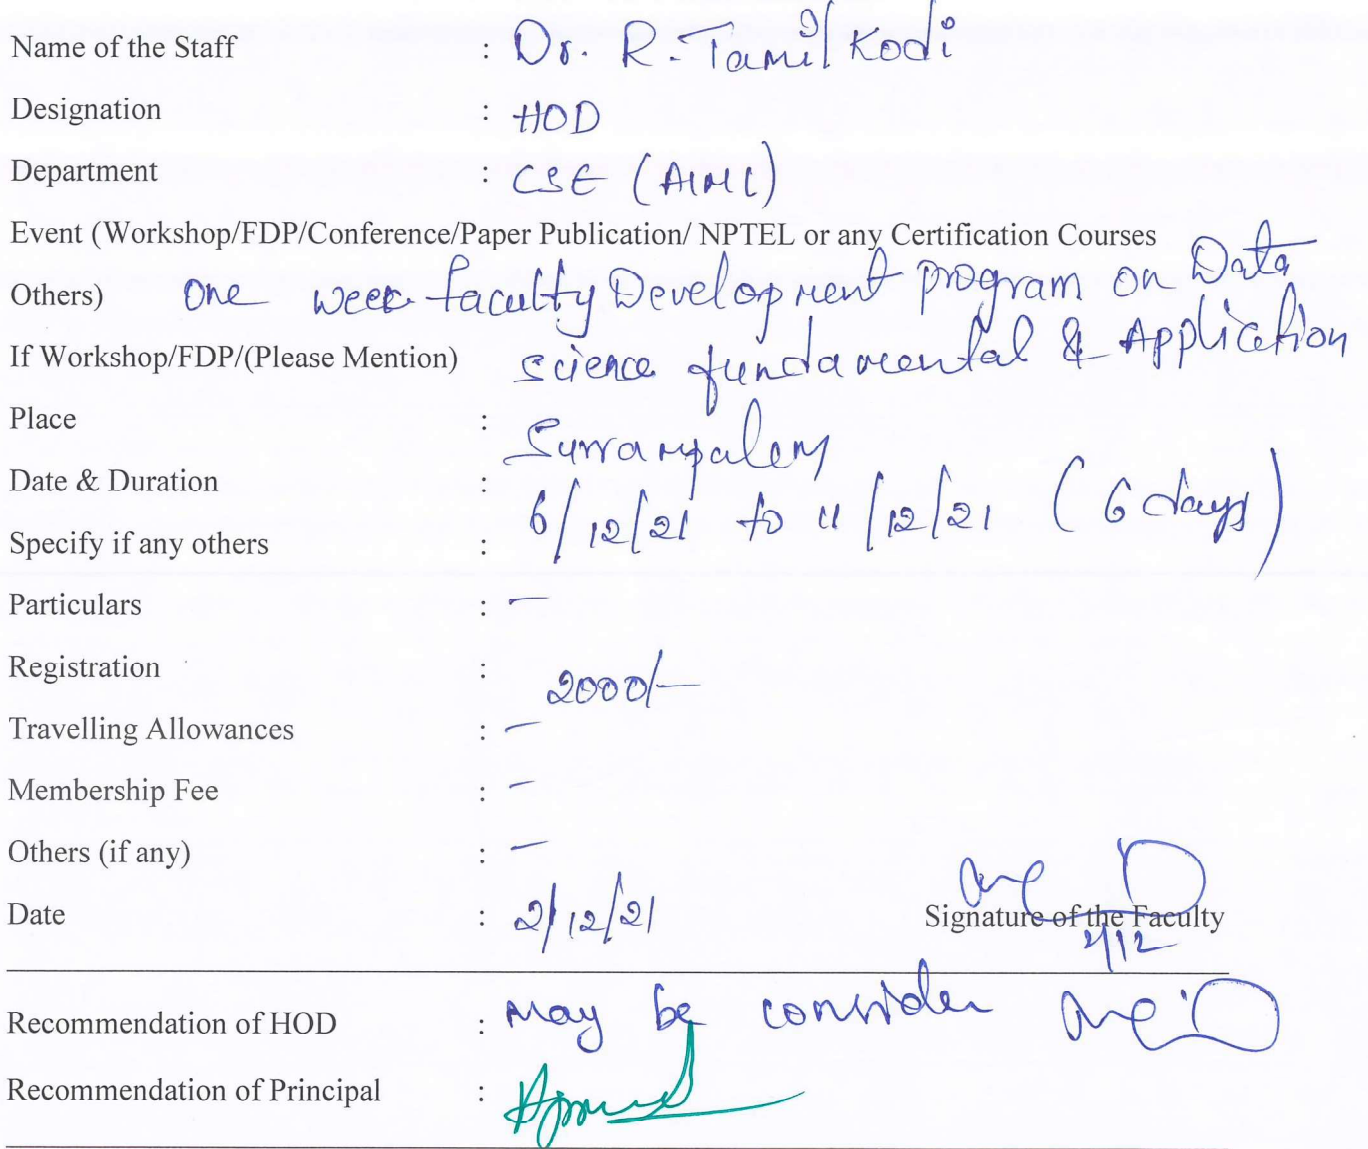 Name of the Staff : Dr. R. Tamil Kodi
Designation : HOD
Department : CSE (AIML)
Event (Workshop/FDP/Conference/Paper Publication/ NPTEL or any Certification Courses
Others) One week faculty Development program on Data
If Workshop/FDP/(Please Mention) science fundamental & Application
Place : Surrampalem
Date & Duration : 6/12/21 to 11/12/21 (6 days)
Specify if any others :
Particulars : —
Registration : 2000/-
Travelling Allowances : —
Membership Fee : —
Others (if any) : —
Date : 2/12/21
Signature of the Faculty
2/12
Recommendation of HOD : May be consider
Recommendation of Principal :